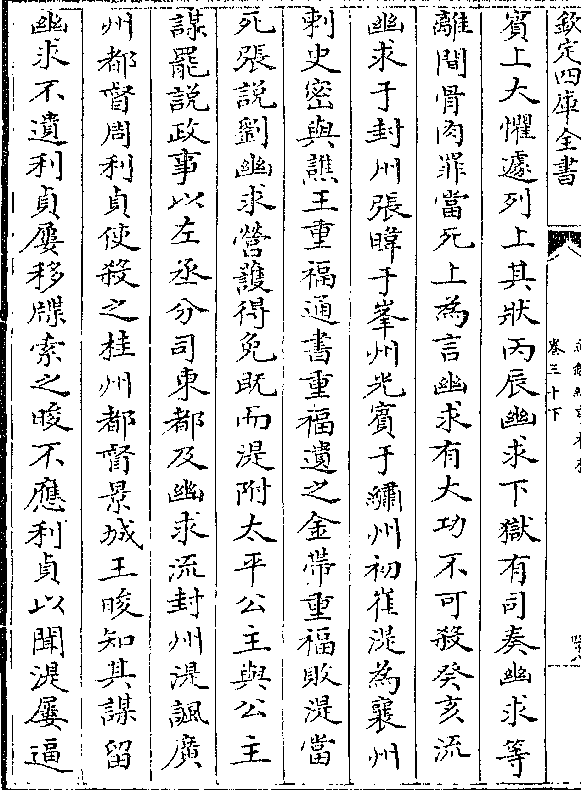 欽定四庫全書
卷三十下
賓上大懼遽列上其狀丙辰幽求下獄有司奏幽求等
離間骨肉罪當死上為言幽求有大功不可殺癸亥流
幽求于封州張暐于峯州光賓于繡州初崔湜為襄州
刺史密與譙王重福通書重福遺之金帶重福敗湜當
死張說劉幽求營護得免既而湜附太平公主與公主
謀罷說政事以左丞分司東都及幽求流封州湜諷廣
州都督周利貞使殺之桂州都督景城王晙知其謀留
幽求不遣利貞屢移牒索之晙不應利貞以聞湜屢逼